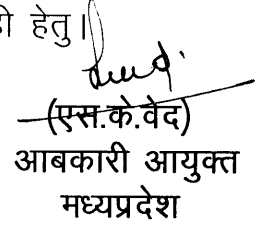 हेतु।
(एस.के.वेद)
आबकारी आयुक्त
मध्यप्रदेश